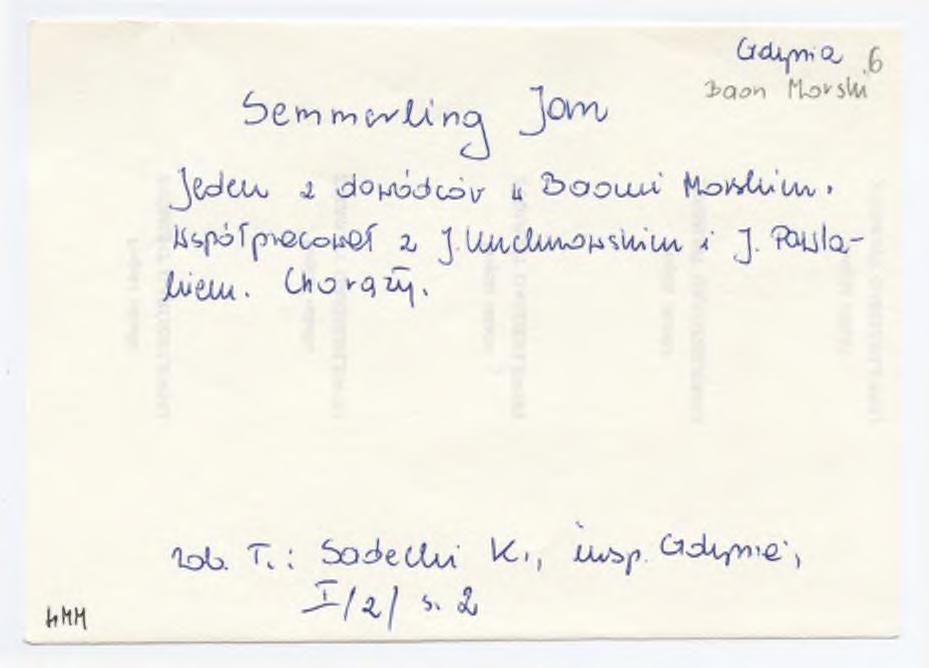 Gdynia 6
Baon Morski
Semmerling Jan
Jeden z dowódców w Baonu Morskim.
Współpracował z J. Kuchnowskim i J. Pawla-
kiem. Chorąży.
zob. T.: Sadecki K., insp. Gdynia,
I/2/ s. 2